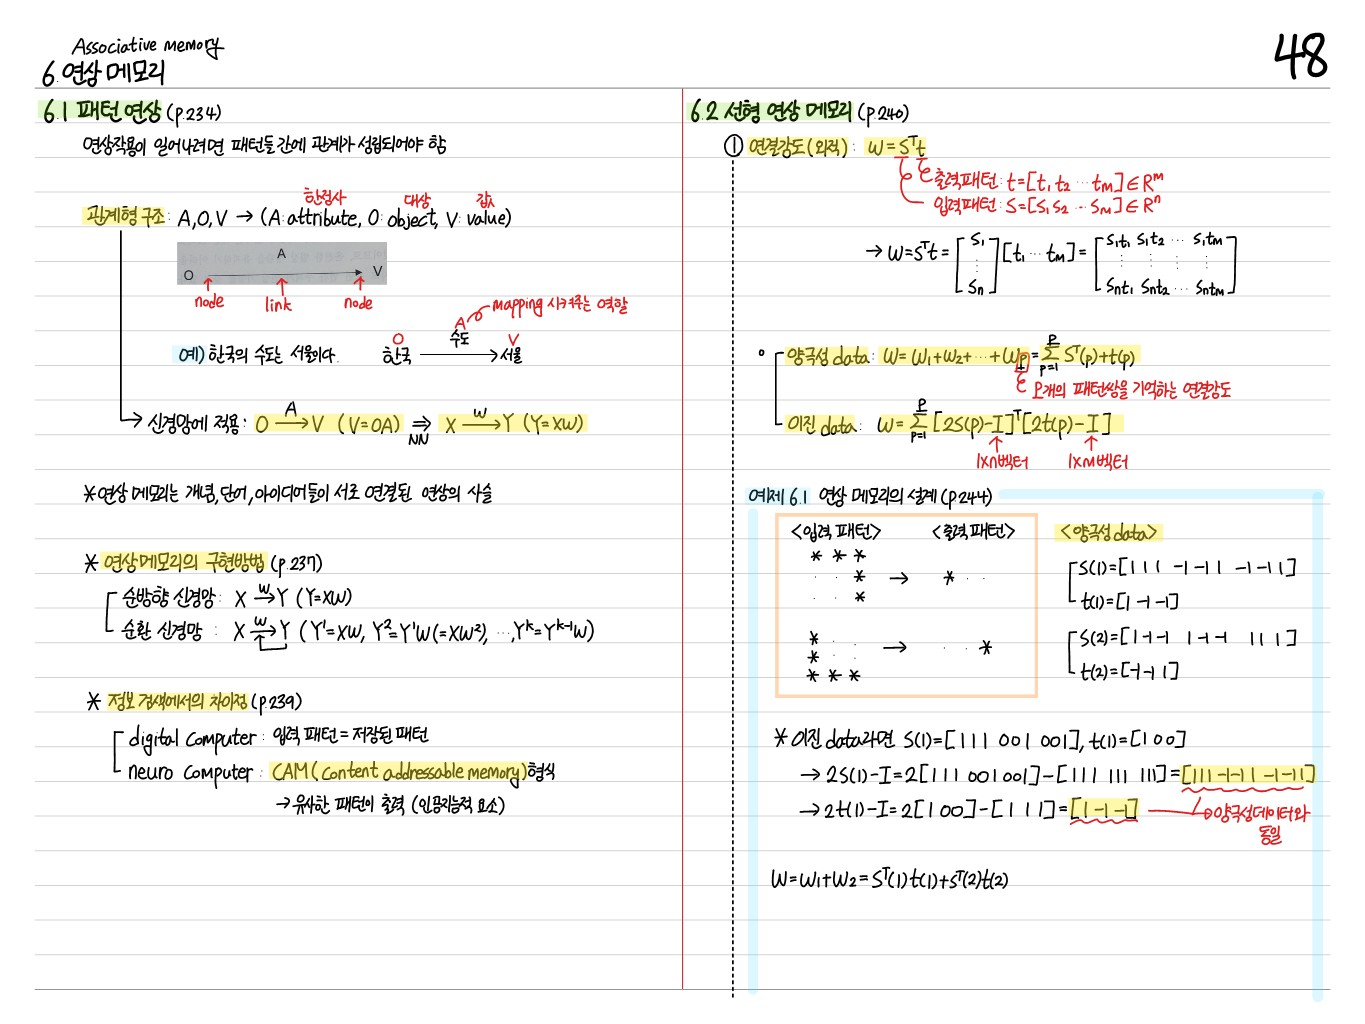 Associative memory
6. 연상 메모리
48
6.1 패턴 연상 (p.234)
연상작용이 일어나려면 패턴들 간에 관계가 성립되어야 함
한정사 대상 값
관계형 구조: A,O,V → (A: attribute, O: object, V: value)
A
O V
node link node
mapping 시켜주는 역할
O A V
예) 한국의 수도는 서울이다. 한국 수도 → 서울
→ 신경망에 적용: O -A→ V (V=OA) ⇒ NN X -w→ Y (Y=XW)
* 연상 메모리는 개념, 단어, 아이디어들이 서로 연결된 연상의 사슬
* 연상메모리의 구현방법 (p.237)
순방향 신경망: X -w→ Y (Y=XW)
순환 신경망 : X -w→ Y (Y¹=XW, Y²=Y¹W(=XW²), ⋯, Yᵏ=Yᵏ⁻¹W)
* 정보 검색에서의 차이점 (p.239)
digital computer: 입력 패턴 = 저장된 패턴
neuro computer: CAM (content addressable memory) 형식
→ 유사한 패턴이 출력 (인공지능적 요소)
6.2 선형 연상 메모리 (p.240)
① 연결강도(외적): W=Sᵀt
출력패턴: t=[t₁ t₂ ⋯ tₘ]∈Rᵐ
입력패턴: S=[S₁ S₂ ⋯ Sₘ]∈Rⁿ
→ W=Sᵀt= [S₁ ⋮ Sₙ] [t₁ ⋯ tₘ] = [S₁t₁ S₁t₂ ⋯ S₁tₘ ⋮ ⋮ ⋮ ⋮ Sₙt₁ Sₙt₂ ⋯ Sₙtₘ]
∘ 양극성 data: W=W₁+W₂+⋯+Wp=∑ᴾp=1 Sᵀ(p)+t(p)
p개의 패턴쌍을 기억하는 연결강도
이진 data: W=∑ᴾp=1 [2S(p)-I]ᵀ[2t(p)-I]
1xn벡터 1xm벡터
예제 6.1 연상 메모리의 설계 (p.244)
<입력 패턴> <출력패턴> <양극성 data>
* * *
· · * → * · ·
· · *
S(1)=[1 1 1 -1 -1 1 -1 -1 1]
t(1)=[1 -1 -1]
* · ·
* · · → · · *
* * *
S(2)=[1 -1 -1 1 -1 -1 1 1 1]
t(2)=[-1 -1 1]
* 이진 data라면 S(1)=[111 001 001], t(1)=[100]
→ 2S(1)-I=2[111 001 001]-[111 111 111]=[111 -1-11 -1-11]
→ 2t(1)-I=2[100]-[111]=[1 -1 -1]
→ 양극성데이터와
동일
W=W₁+W₂=Sᵀ(1)t(1)+Sᵀ(2)t(2)